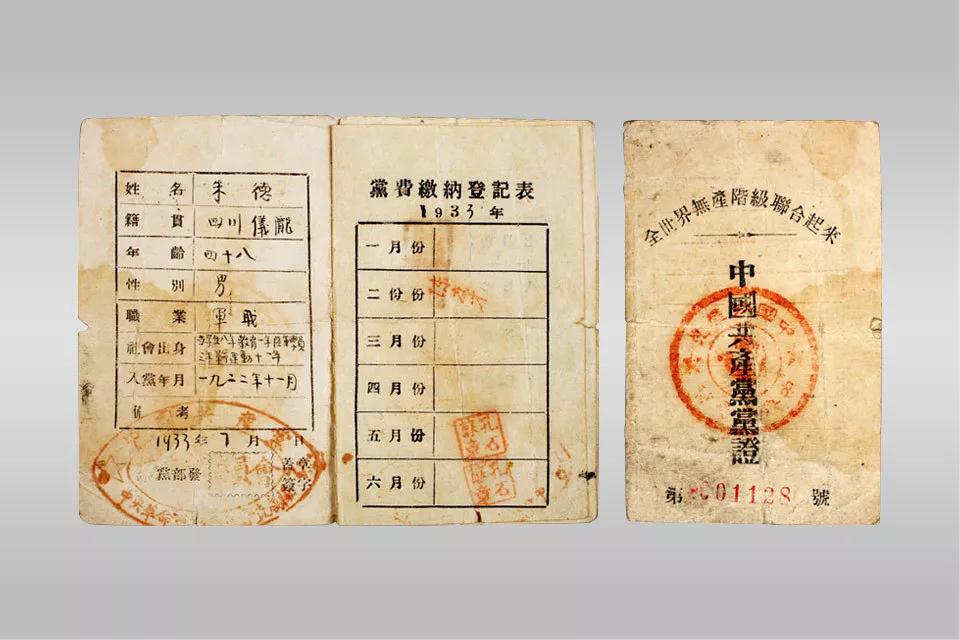 姓名 朱德
籍貫 四川儀隴
年齡 四十八
性別 男
職業 軍職
社會出身
入黨年月 一九二二年十一月
考
1933年 月 日
黨部發
蓋章
簽字
黨費繳納登記表
1933年
一月份
二份份
三月份
四月份
五月份
六月份
全世界無產階級聯合起來
中國共產黨黨證
第 01128 號